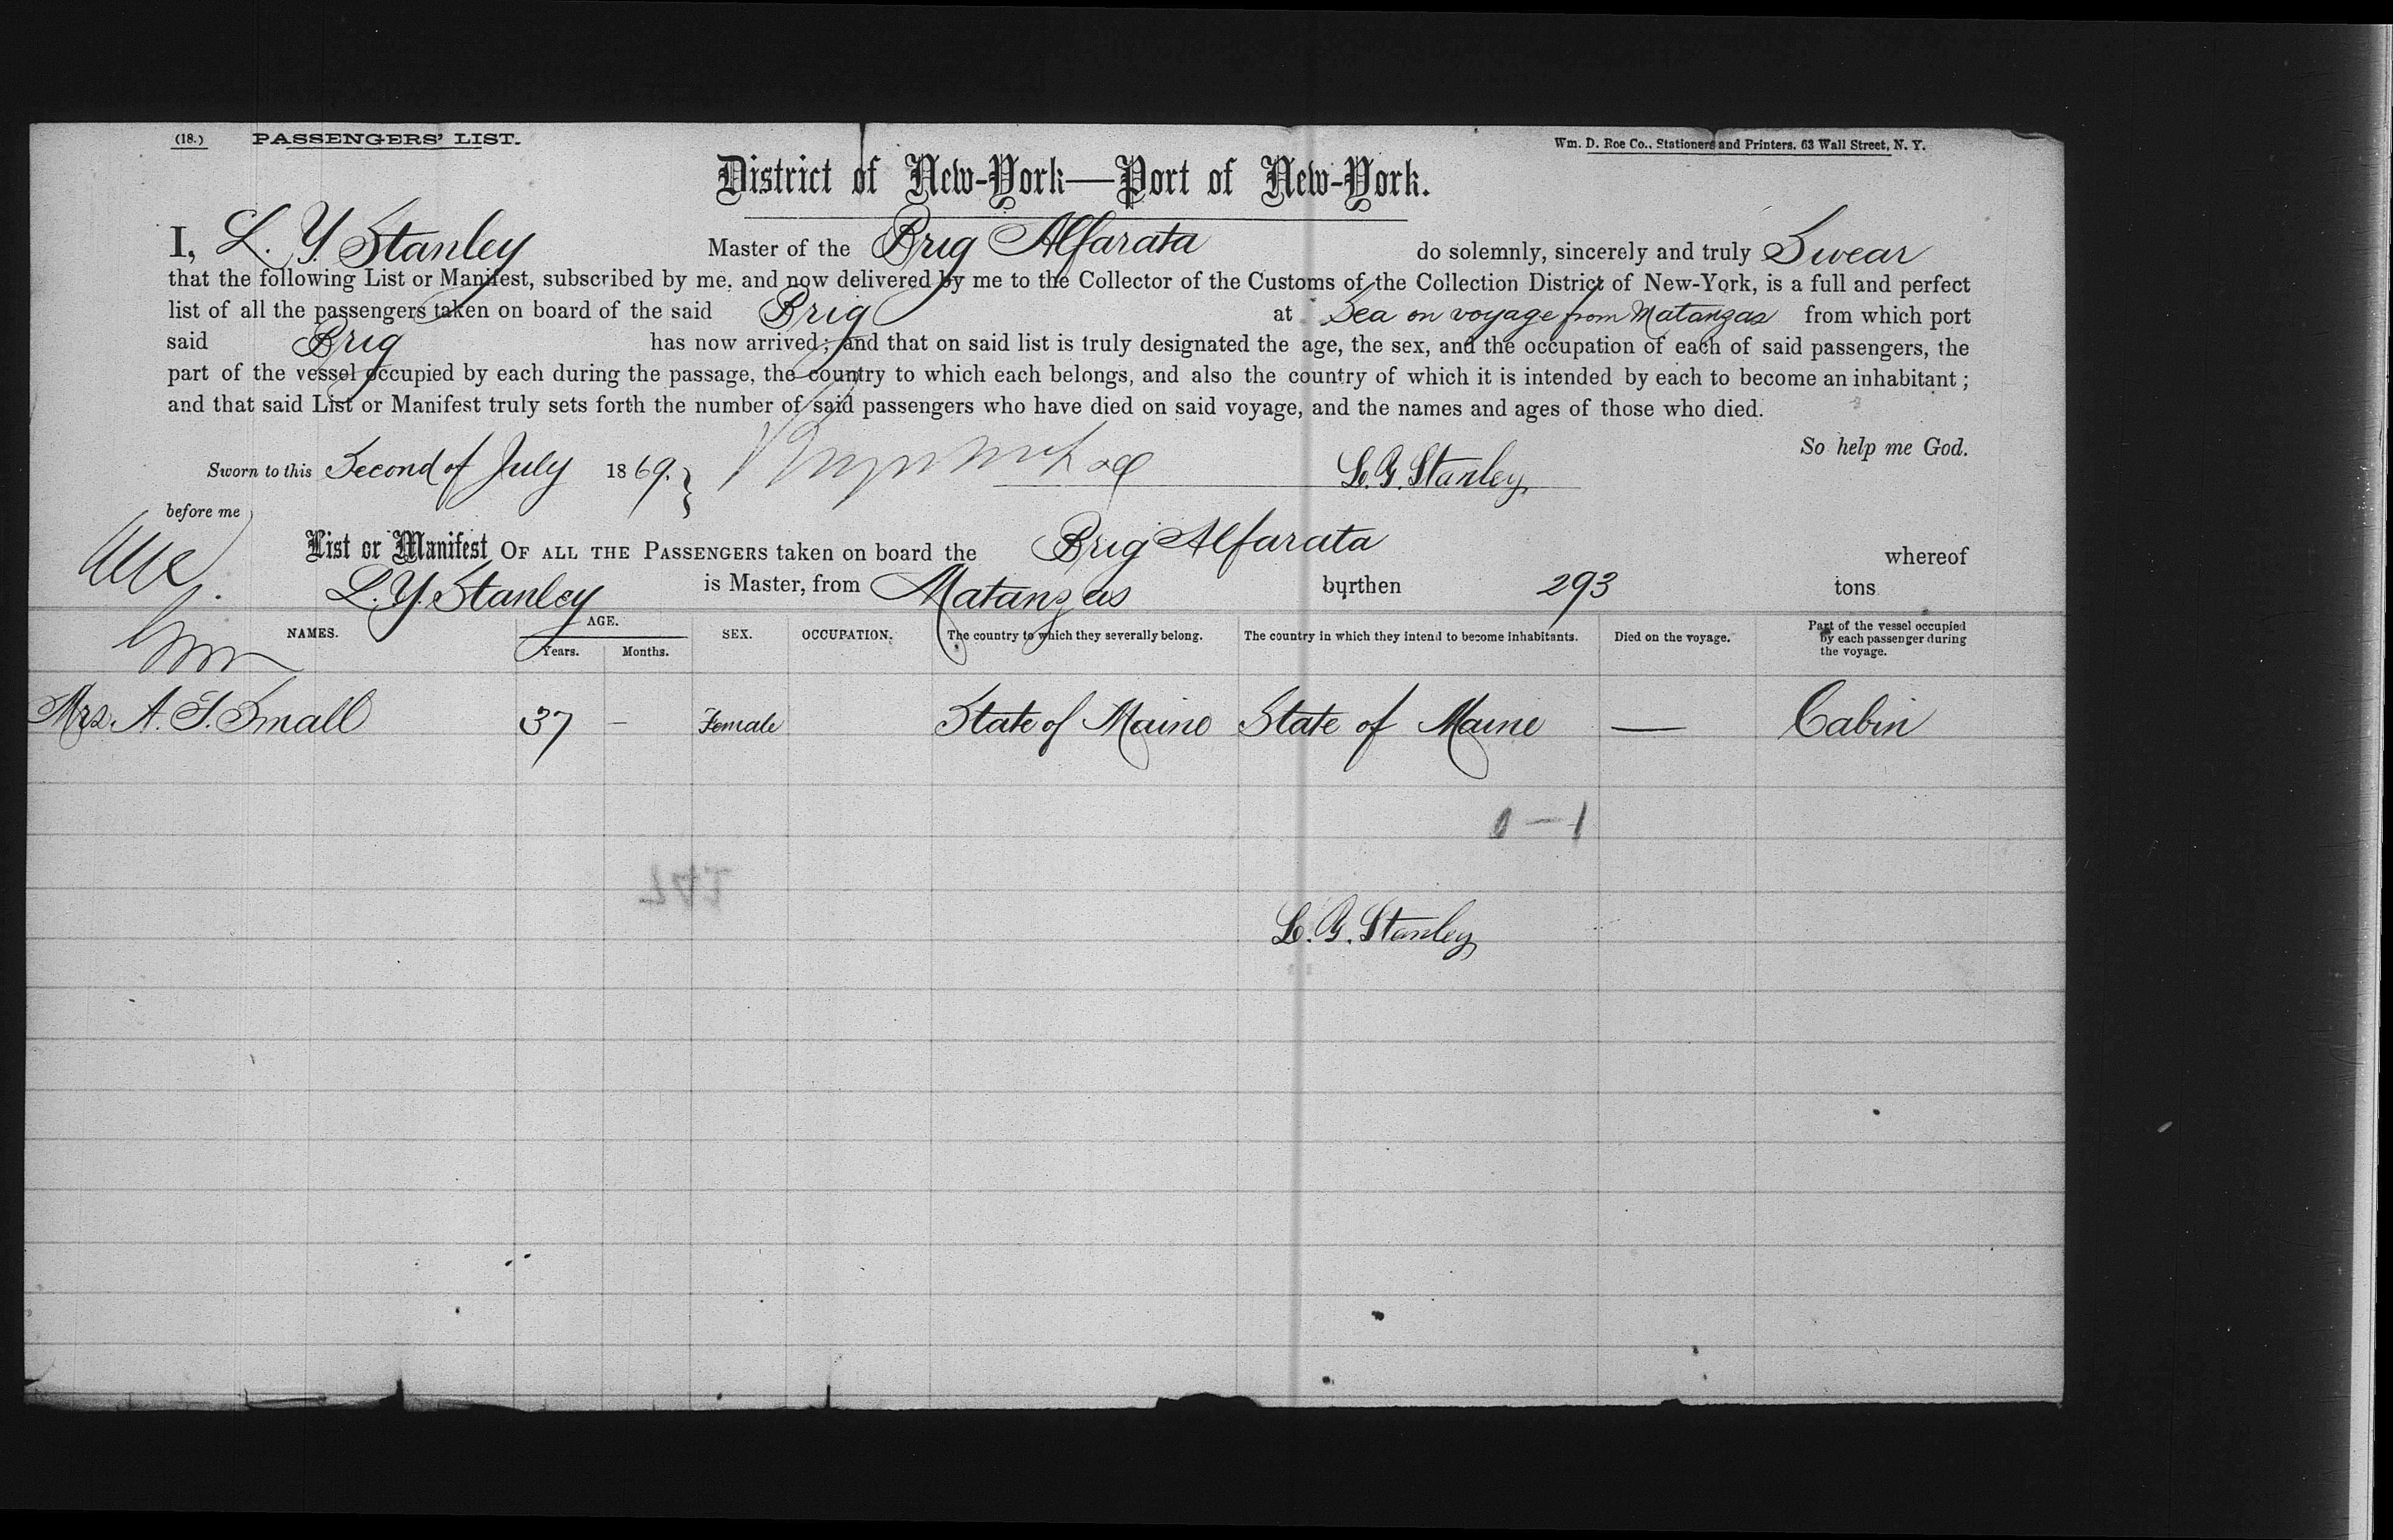 (18.) PASSENGERS' LIST.
Wm. D. Roe Co., Stationers and Printers, 63 Wall Street, N. Y.
District of New-York—Port of New-York.
I, L. Y. Stanley Master of the Brig Alfarata do solemnly, sincerely and truly Swear
that the following List or Manifest, subscribed by me, and now delivered by me to the Collector of the Customs of the Collection District of New-York, is a full and perfect
list of all the passengers taken on board of the said Brig at Sea on voyage from Matanzas from which port
said Brig has now arrived; and that on said list is truly designated the age, the sex, and the occupation of each of said passengers, the
part of the vessel occupied by each during the passage, the country to which each belongs, and also the country of which it is intended by each to become an inhabitant;
and that said List or Manifest truly sets forth the number of said passengers who have died on said voyage, and the names and ages of those who died.
So help me God.
Sworn to this Second of July 1869. L. G. Stanley
before me
List or Manifest OF ALL THE PASSENGERS taken on board the Brig Alfarata whereof
L. Y. Stanley is Master, from Matanzas burthen 293 tons
NAMES. AGE. Years. Months. SEX. OCCUPATION. The country to which they severally belong. The country in which they intend to become inhabitants. Died on the voyage. Part of the vessel occupied by each passenger during the voyage.
Mrs. A. T. Small 37 – Female State of Maine State of Maine — Cabin
0 – 1
L. G. Stanley